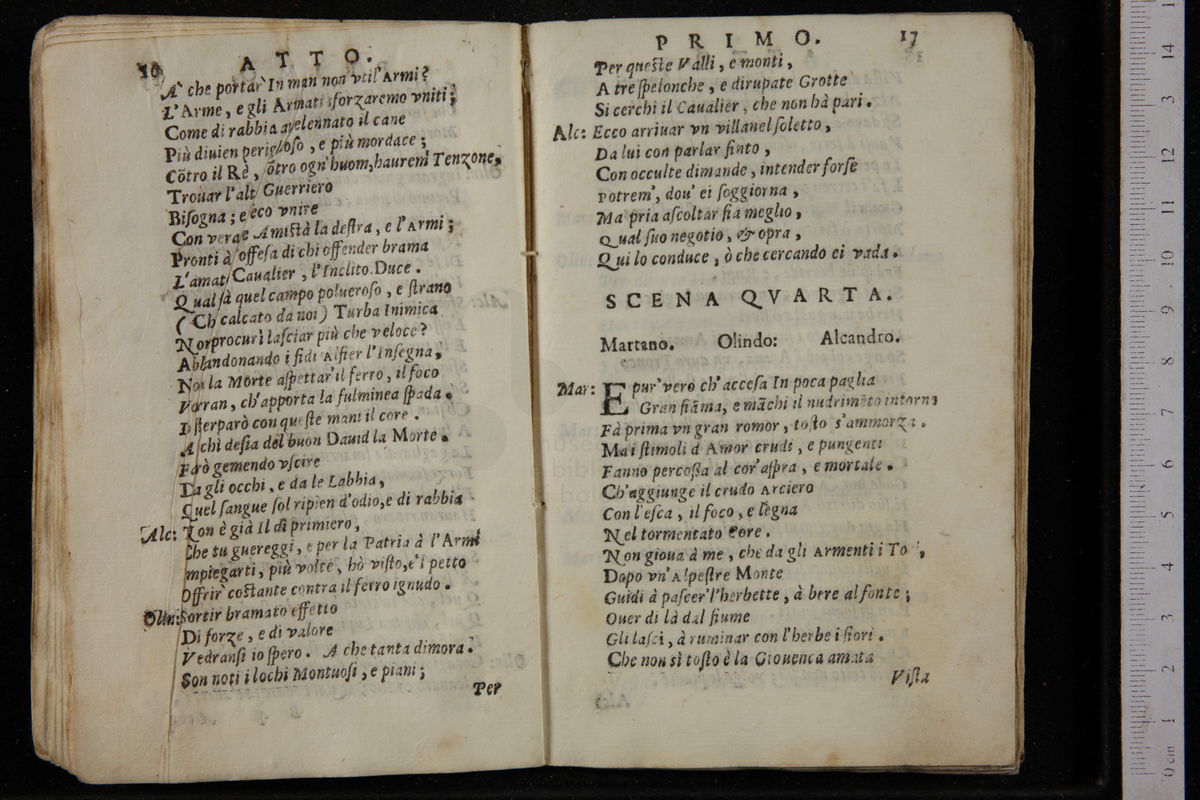 16 ATTO.
A' che portar' In man non vtil' Armi?
L'Arme, e gli Armati sforzaremo vniti;
Come di rabbia auelennato il cane
Più diuien periglioso, e più mordace;
Cōtro il Rè, cōtro ogn'huom, haurem' Tenzone,
Trouar l'alt Guerriero
Bisogna; e seco vnire
Con verac Amistà la destra, e l'Armi;
Pronti à l'offesa di chi offender brama
L'amat Caualier, l'Inclito Duce.
Qual fà quel campo polueroso, e strano
(Ch calcato da noi) Turba Inimica
Nor procuri lasciar più che veloce?
Abbandonando i fidi Alfier l'Insegna,
Noi la Morte aspettar' il ferro, il foco
Vorran, ch'apporta la fulminea spada.
Isterparò con queste mani il core.
A chi desia del buon Dauid la Morte.
Farò gemendo vscire
Da gli occhi, e da le Labbia,
Quel sangue sol ripien d'odio, e di rabbia
Alc: Non è già Il dì primiero,
Che tu guereggi, e per la Patria à l'Armi
Impiegarti, più volte, hò visto, e'l petto
Offrir' costante contra il ferro ignudo.
Olin: Sortir bramato effetto
Di forze, e di valore
Vedransi io spero. A che tanta dimora.
Son noti i lochi Montuosi, e piani;
Per
PRIMO. 17
Per queste Valli, e monti,
A tre spelonche, e dirupate Grotte
Si cerchi il Caualier, che non hà pari.
Alc: Ecco arriuar vn villanel soletto,
Da lui con parlar finto,
Con occulte dimande, intender forse
Potrem', dou' ei soggiorna,
Ma pria ascoltar fia meglio,
Qual suo negotio, & opra,
Qui lo conduce, ò che cercando ei vada.
SCENA QVARTA.
Martano. Olindo: Alcandro.
Mar: E pur' vero ch'accesa In poca paglia
Gran fiāma, e māchi il nudrimēto intorno
Fà prima vn gran romor, tosto s'ammorza.
Ma i stimoli d Amor crudi, e pungenti
Fanno percossa al cor' aspra, e mortale.
Ch'aggiunge il crudo Arciero
Con l'esca, il foco, e legna
Nel tormentato Core.
Non gioua à me, che da gli Armenti i To i,
Dopo vn' Alpestre Monte
Guidi à pascer' l'herbette, à bere al fonte;
Ouer di là dal fiume
Gli lasci, à ruminar con l'herbe i fiori.
Che non sì tosto è la Giouenca amata
Vista